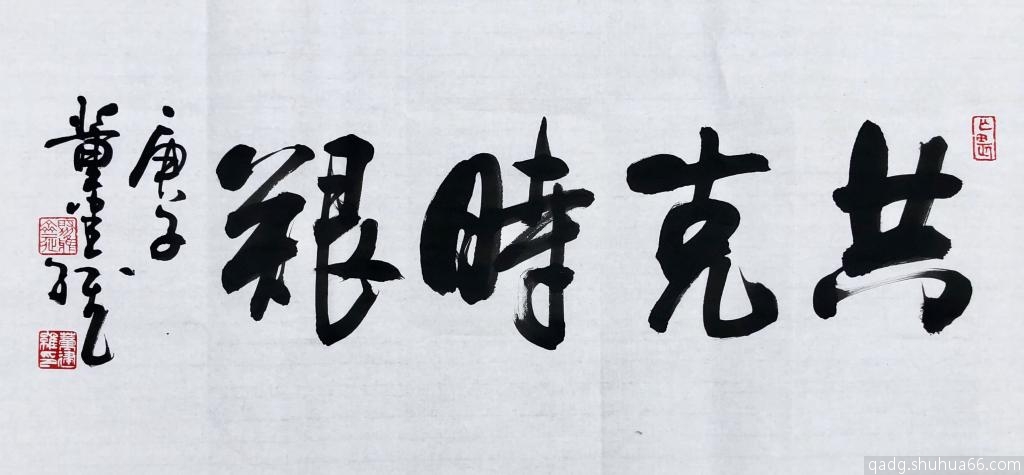 共克時艱
庚子
董建雄
qadg.shuhua66.com